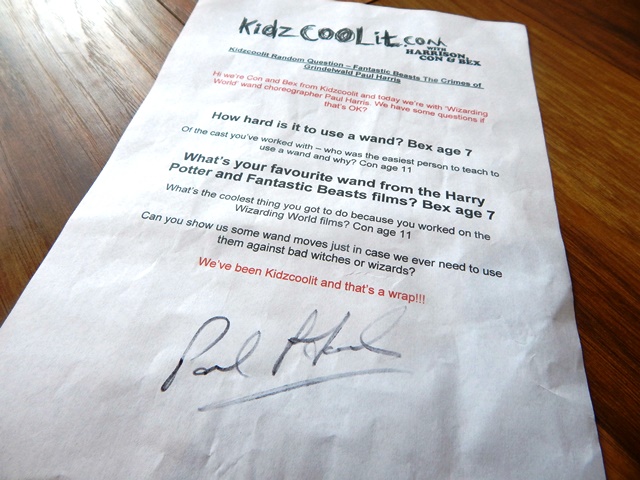 Kidz COOLit.com
WITH
HARRISON,
CON & BEX
Kidzcoolit Random Question – Fantastic Beasts The Crimes of
Grindelwald Paul Harris
Hi we're Con and Bex from Kidzcoolit and today we're with 'Wizarding
World' wand choreographer Paul Harris. We have some questions if
that's OK?
How hard is it to use a wand? Bex age 7
Of the cast you've worked with – who was the easiest person to teach to
use a wand and why? Con age 11
What's your favourite wand from the Harry
Potter and Fantastic Beasts films? Bex age 7
What's the coolest thing you got to do because you worked on the
Wizarding World films? Con age 11
Can you show us some wand moves just in case we ever need to use
them against bad witches or wizards?
We've been Kidzcoolit and that's a wrap!!!
Paul Harris